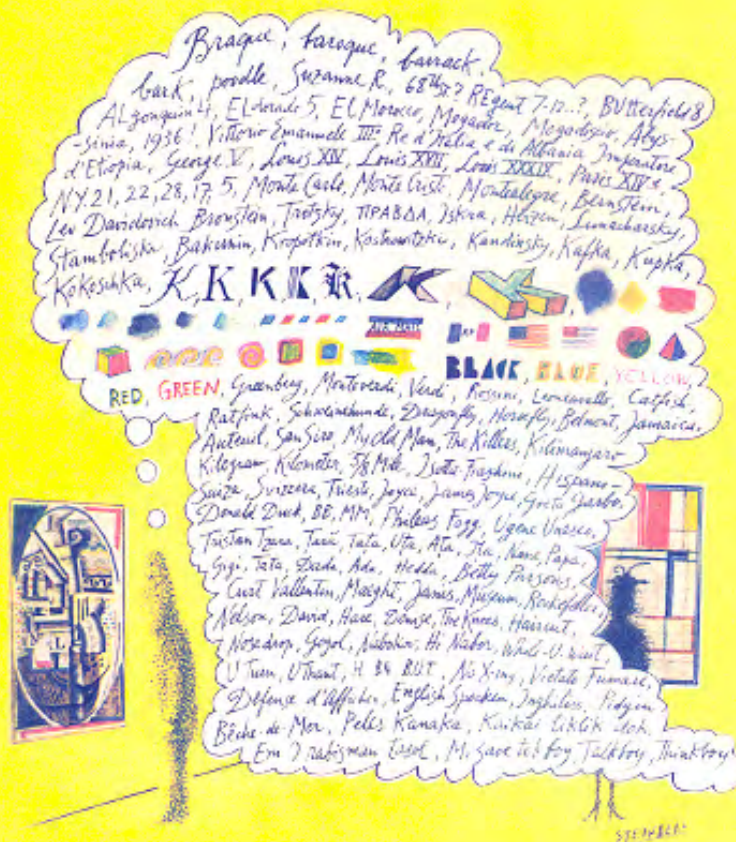 Braque, baroque, barrack,
bark, poodle, Suzanne R., 68th St? REgent 7-12..?, BUtterfield 8
ALgonquin 4, ELdorado 5, El Morocco, Mogador, Mogadiscio, Abys-
-sinia, 1936! Vittorio Emanuele III° Re d'Italia e di Albania Imperatore
d'Etiopia, George V, Louis XIV, Louis XVII, Louis XXXIX, Paris XIVe,
NY 21, 22, 28, 17, 5, Monte Carlo, Monte Cristi, Montealegre, Bernstein,
Lev Davidovich Bronstein, Trotzky, ПРАВДА, Iskra, Herzen, Lunacharsky,
Stambolisky, Bakunin, Kropotkin, Kostrowitzky, Kandinsky, Kafka, Kupka,
Kokoschka, K, K, K, K, K, K
BLACK, BLUE, YELLOW,
RED, GREEN, Greenberg, Monteverdi, Verdi, Rossini, Leoncavallo, Catfish,
Ratfink, Schweinehunde, Dragonfly, Horsefly, Belmont, Jamaica,
Auteuil, San Siro, My Old Man, The Killers, Kilimanzaro
Kilogram, Kilometer, 5/8 Mile, Isotta-Fraschini, Hispano-
Suiza, Svizzera, Trieste, Joyce, James Joyce, Greta Garbo,
Donald Duck, BB, MM, Phileas Fogg, Ugene Unesco,
Tristan Tzara, Tata, Uta, Ata, Ira, Nane, Papa,
Gigi, Tata, Dada, Ada, Hedda, Betty Parsons,
Curt Vallentin, Maeght, Janis, Museum, Rockefeller,
Nelson, David, Hare, Denise, The Knees, Haircut,
Nosedrop, Gogol, Nabokov, Hi Nabor, What-U-Want,
U Turn, UThant, H B4 BUT, No X-ing, Vietato Fumare,
Défense d'Afficher, English Spoken, Inglese, Pidgin
Bêche-de-Mer, Peles Kanaka, Kaikai Liklik
Em I, M. save tok boy, Talkboy, Thinkboy